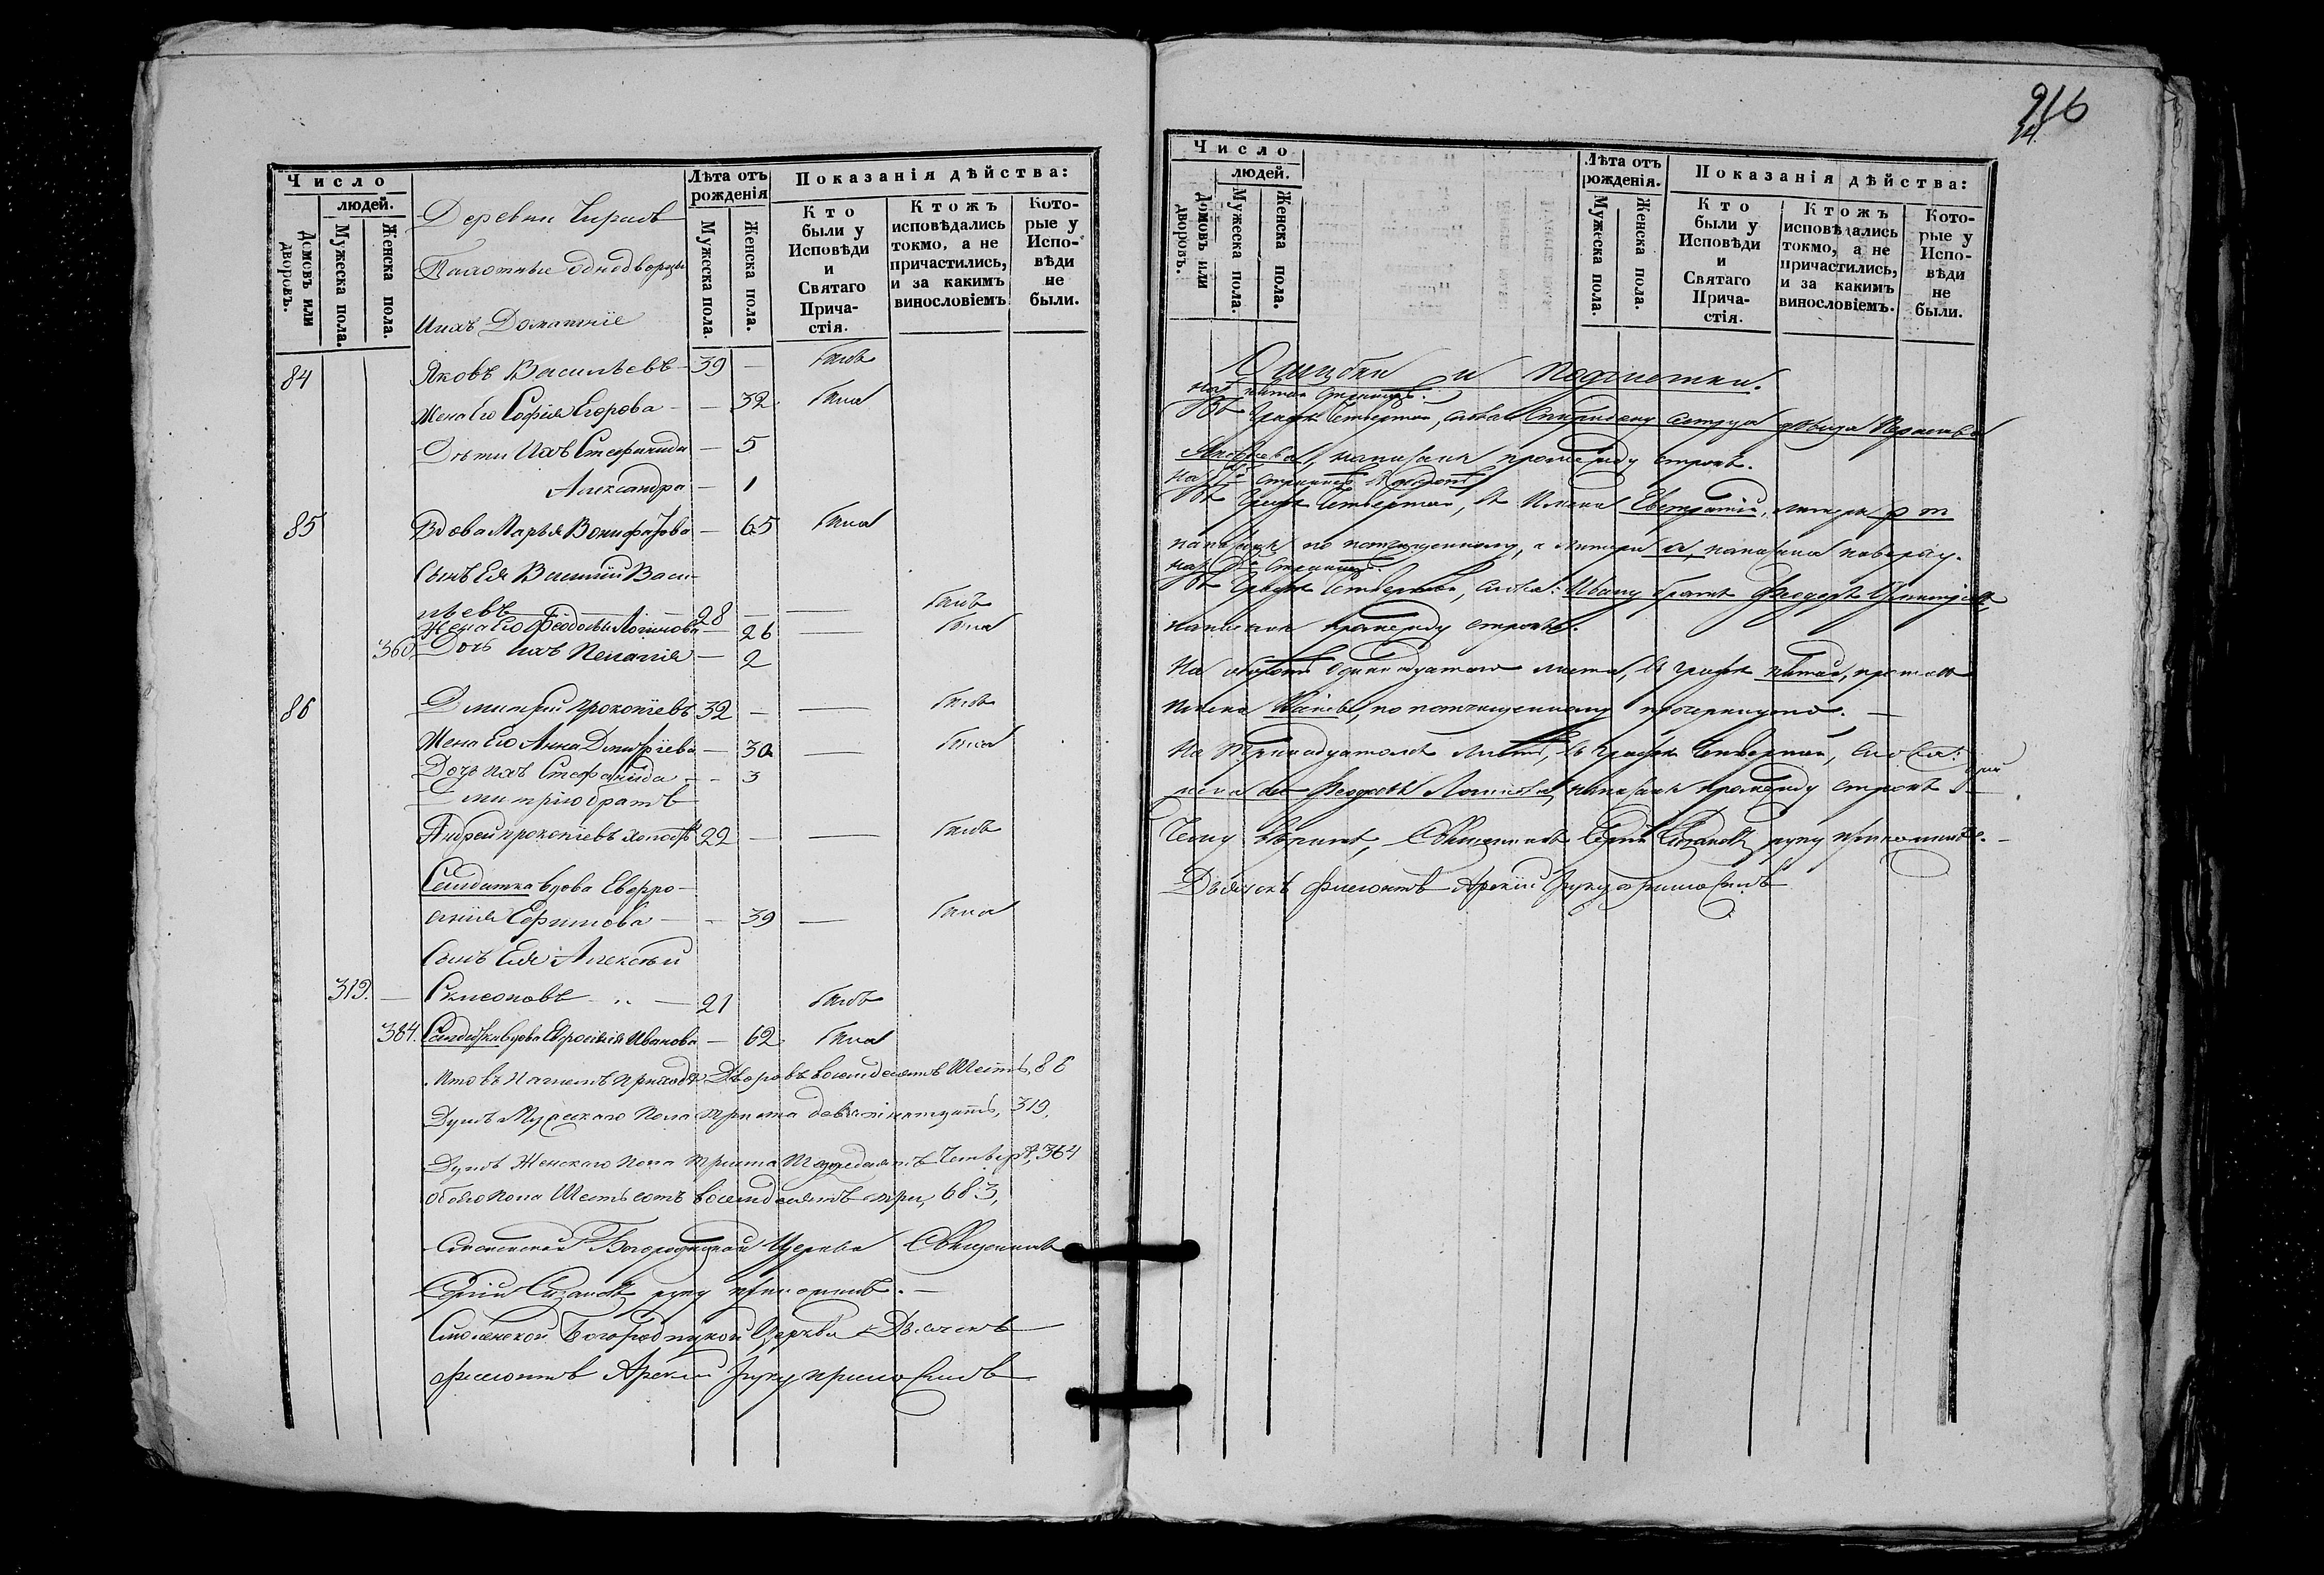 Число
людей.
Домовъ или дворовъ.
Мужеска пола.
Женска пола.
Деревни
Пахотные однодворцы
Ихъ Домашніе
Лѣта отъ рожденія
Мужеска пола.
Женска пола.
Показанія дѣйства:
Кто были у Исповѣди и Святаго Причастія.
Ктожъ исповѣдались токмо, а не причастились, и за какимъ винословіемъ.
Которые у Исповѣди не были.
84 Яковъ Васильевъ 39 — былъ
Жена Его Софія Егорова — 32 была
Дѣти Ихъ Стефанида — 5
Александра — 1
85 Вдова Марья Вонифатова — 65 была
Сынъ Ея Василій Васи-
льевъ 28 — былъ
Жена Его Феодосья Логинова — 26 — была
360 Дочь ихъ Пелагія — 2
86 Димитрій Прокопіевъ 32 — — былъ
Жена Его Анна Дмитріева — 30 — была
Дочь ихъ Стефанида — 3
Димитрію братъ
Андрей Прокопіевъ холостъ 22 — — былъ
Солдатка вдова Евфро-
синія Ефимова — 39 — была
Сынъ Ея Алексѣй
319. — Симеоновъ — 21 былъ
364. Солдатка вдова Ефросинія Иванова — 62 былa
Итого въ нашемъ приходѣ Дворовъ восемдесятъ Шесть, 86
Душъ Мужескаго Пола триста девятнатцать, 319,
Душъ Женскаго пола триста Шездесятъ Четыре, 364
Обоего пола Шесть сотъ восемдесятъ три, 683,
Смоленской Богородицкой Церкви Священникъ
Сергій руку приложилъ. —
Смоленской Богородицкой Церкви Дьячекъ
Филиповъ руку приложилъ
916
14.
Число
людей.
Домовъ или дворовъ.
Мужеска пола.
Женска пола.
Лѣта отъ рожденія.
Мужеска пола.
Женска пола.
Показанія дѣйства:
Кто были у Исповѣди и Святаго Причастія.
Ктожъ исповѣдались токмо, а не причастились, и за какимъ винословіемъ.
Которые у Исповѣди не были.
Ошибки и подчистки.
На пятой страницѣ:
Въ Графѣ Четвертой, слова Спиридону сестра дѣвица
написаны промежду строкъ.
На страницѣ
Въ Графѣ Четвертой, въ Имени Евстратій, литеры р т
написаны по подчищенному, а литера а, написана поверху.
На страницѣ:
Въ Графѣ Четвертой, слова: Ивану братъ Феодоръ
написаны промежду строкъ.
На оборотѣ Одинадцатаго листа, въ графѣ пятой, противъ
имени по подчищенному прочеркнуто. —
На Тринадцатомъ листѣ, въ графѣ Четвертой, слова:
жена его Феодосья Логинова, написаны промежду строкъ. —
Чему вѣримъ, Священникъ Сергій руку приложилъ. —
Дьячекъ Филиповъ руку приложилъ